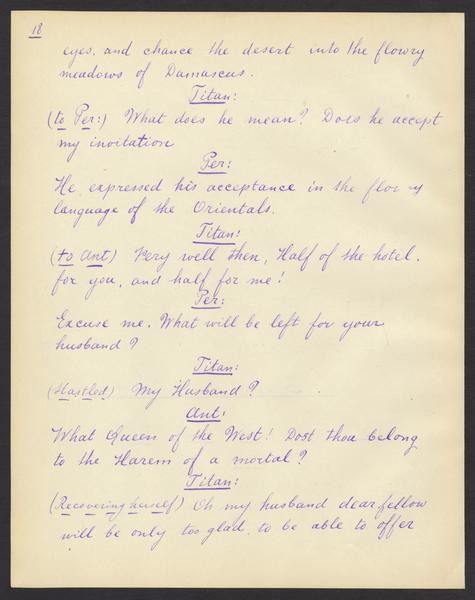 18
eyes, and chance the desert into the flowry
meadows of Damascus.
Titan:
(to Per:) What does he mean? Does he accept
my invitation
Per:
He expressed his acceptance in the flowry
language of the Orientals.
Titan:
(to Ant) Very well then, Half of the hotel.
for you, and half for me!
Per:
Excuse me. What will be left for your
husband?
Titan:
(Startled) My Husband?
Ant:
What Queen of the West! Dost thou belong
to the Harem of a mortal?
Titan:
(Recovering herself) Oh my husband dear fellow
will be only too glad, to be able to offer